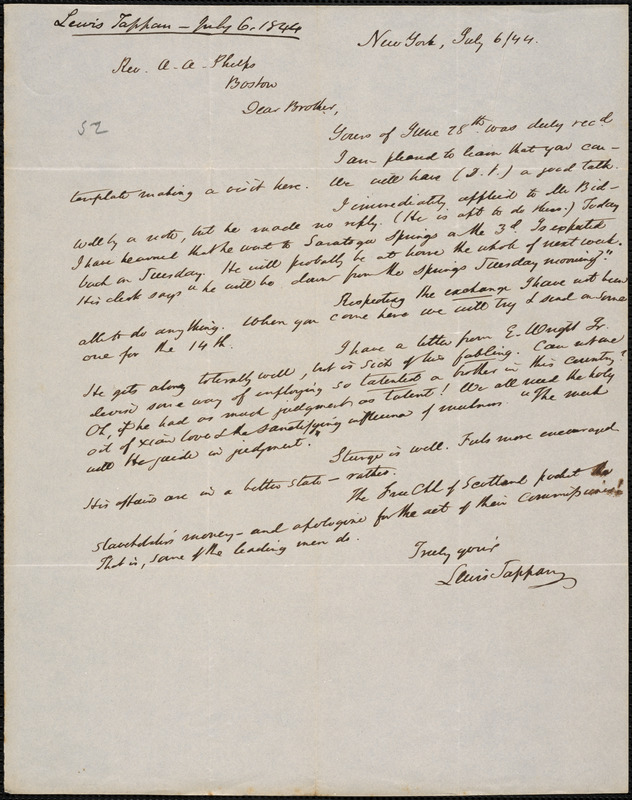 Lewis Tappan - July 6. 1844
New York, July 6/44.
Rev. A. A. Phelps
Boston
Dear Brother,
52
Yours of June 28th was duly rec'd
I am pleased to learn that you con-
template making a visit here. We will have (D.V.) a good talk.
I immediately applied to Mr Bid-
well by a note, but he made no reply. (He is apt to do thus.) Today
I have learned that he went to Saratoga Springs on the 3d. Is expected
back on Tuesday. He will probably be at home the whole of next week.
His clerk says "he will be down from the Springs Tuesday morning".
Respecting the exchange I have not been
able to do anything. When you come here we will try & send on some
one for the 14th.
I have a letter from E. Wright Jr.
He gets along tolerably well, but is sick of his fabling. Can not we
devise some way of employing so talented a brother in this country?
Oh, if he had as much judgment as talent! We all need the holy
out of xian love & the sanctifying influence of meekness. "The meek
will He guide in judgment."
Sturge is well. Feels more encouraged
His affairs are in a better state - rather.
The Free Chh of Scotland pocket the
slaveholder's money - and apologise for the acts of their Commissioners!
That is, some of the leading men do.
Truly yours
Lewis Tappan